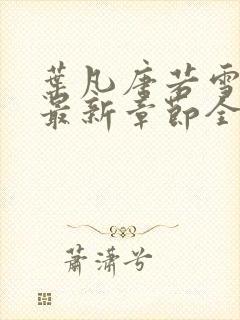 葉凡唐若雪
最新章節全
蕭瀟兮